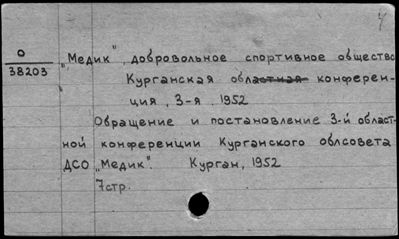 4
О
38203
„Медик", добровольное спортивное общество
Курганская областная конферен-
ция, 3-я. 1952
Обращение и постановление 3-й област-
ной конференции Курганского облсовета
ДСО „Медик". Курган, 1952
7стр.